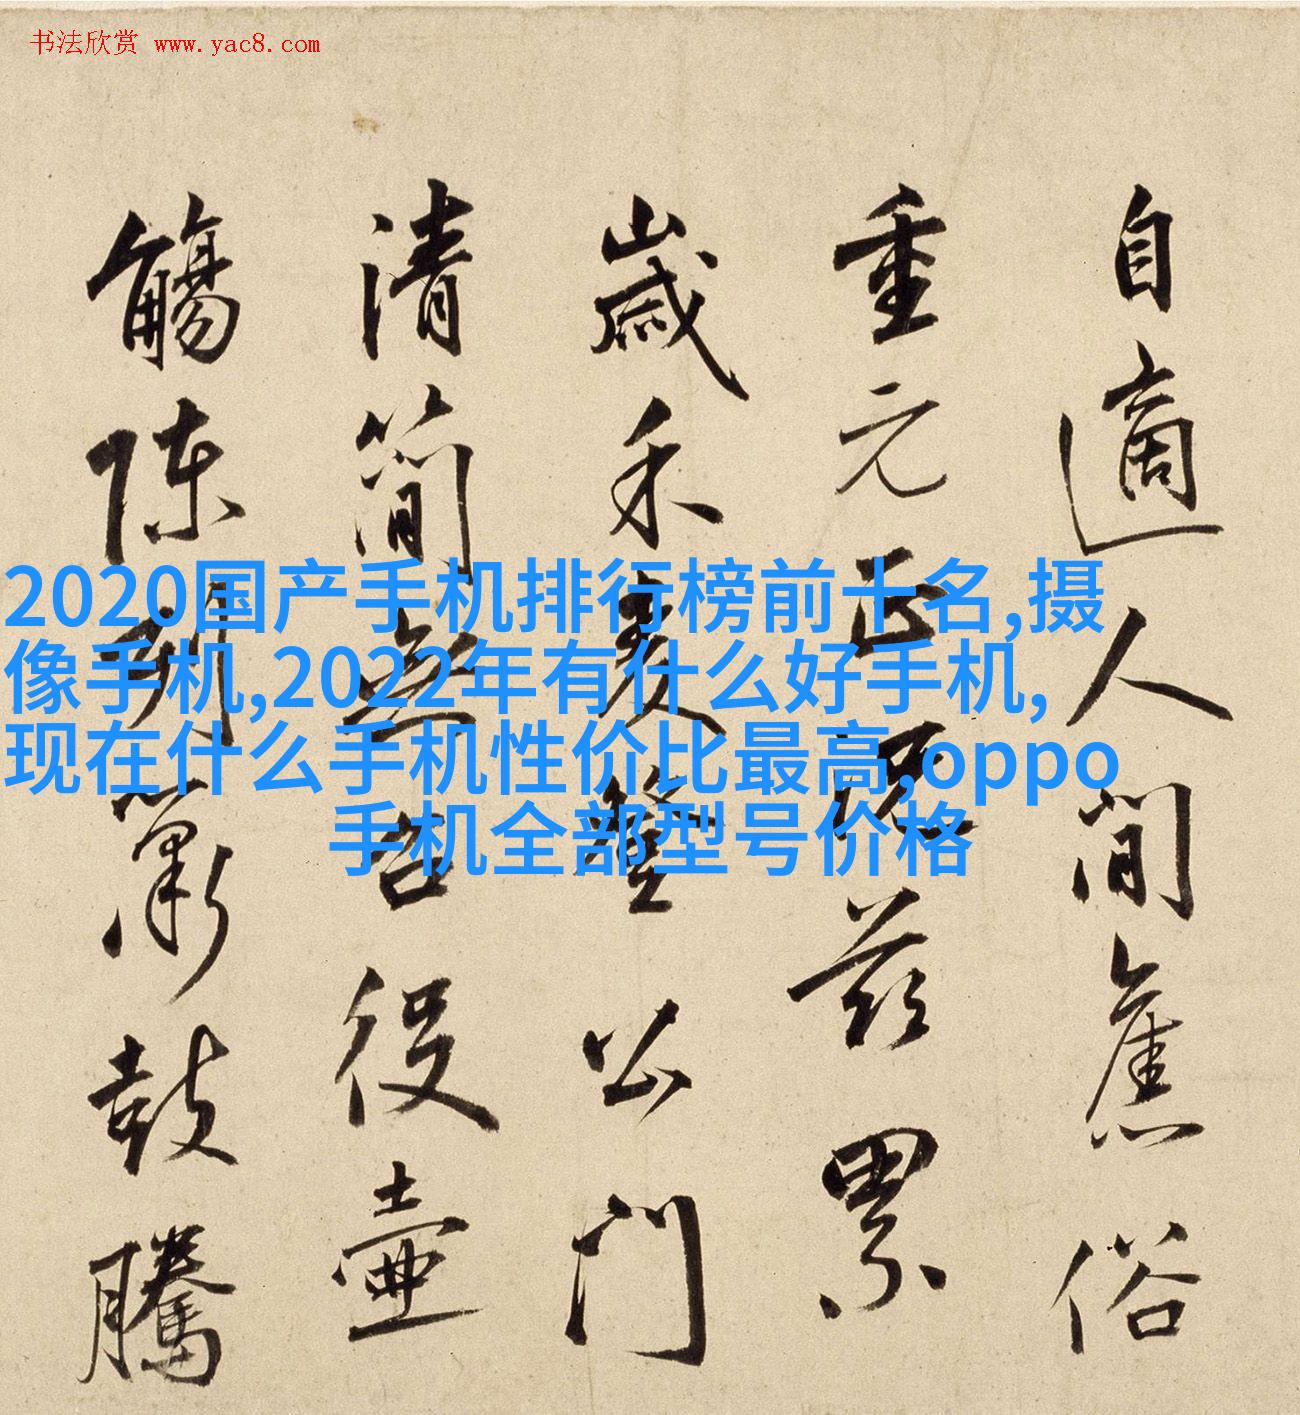 书法欣赏 www.yac8.com
自適人間舊俗
重元正茲累
歲禾麦登公門
清簡無召役壺
觴陳簫鼓騰
2020国产手机排行榜前十名,摄
像手机,2022年有什么好手机,
现在什么手机性价比最高,oppo
手机全部型号价格